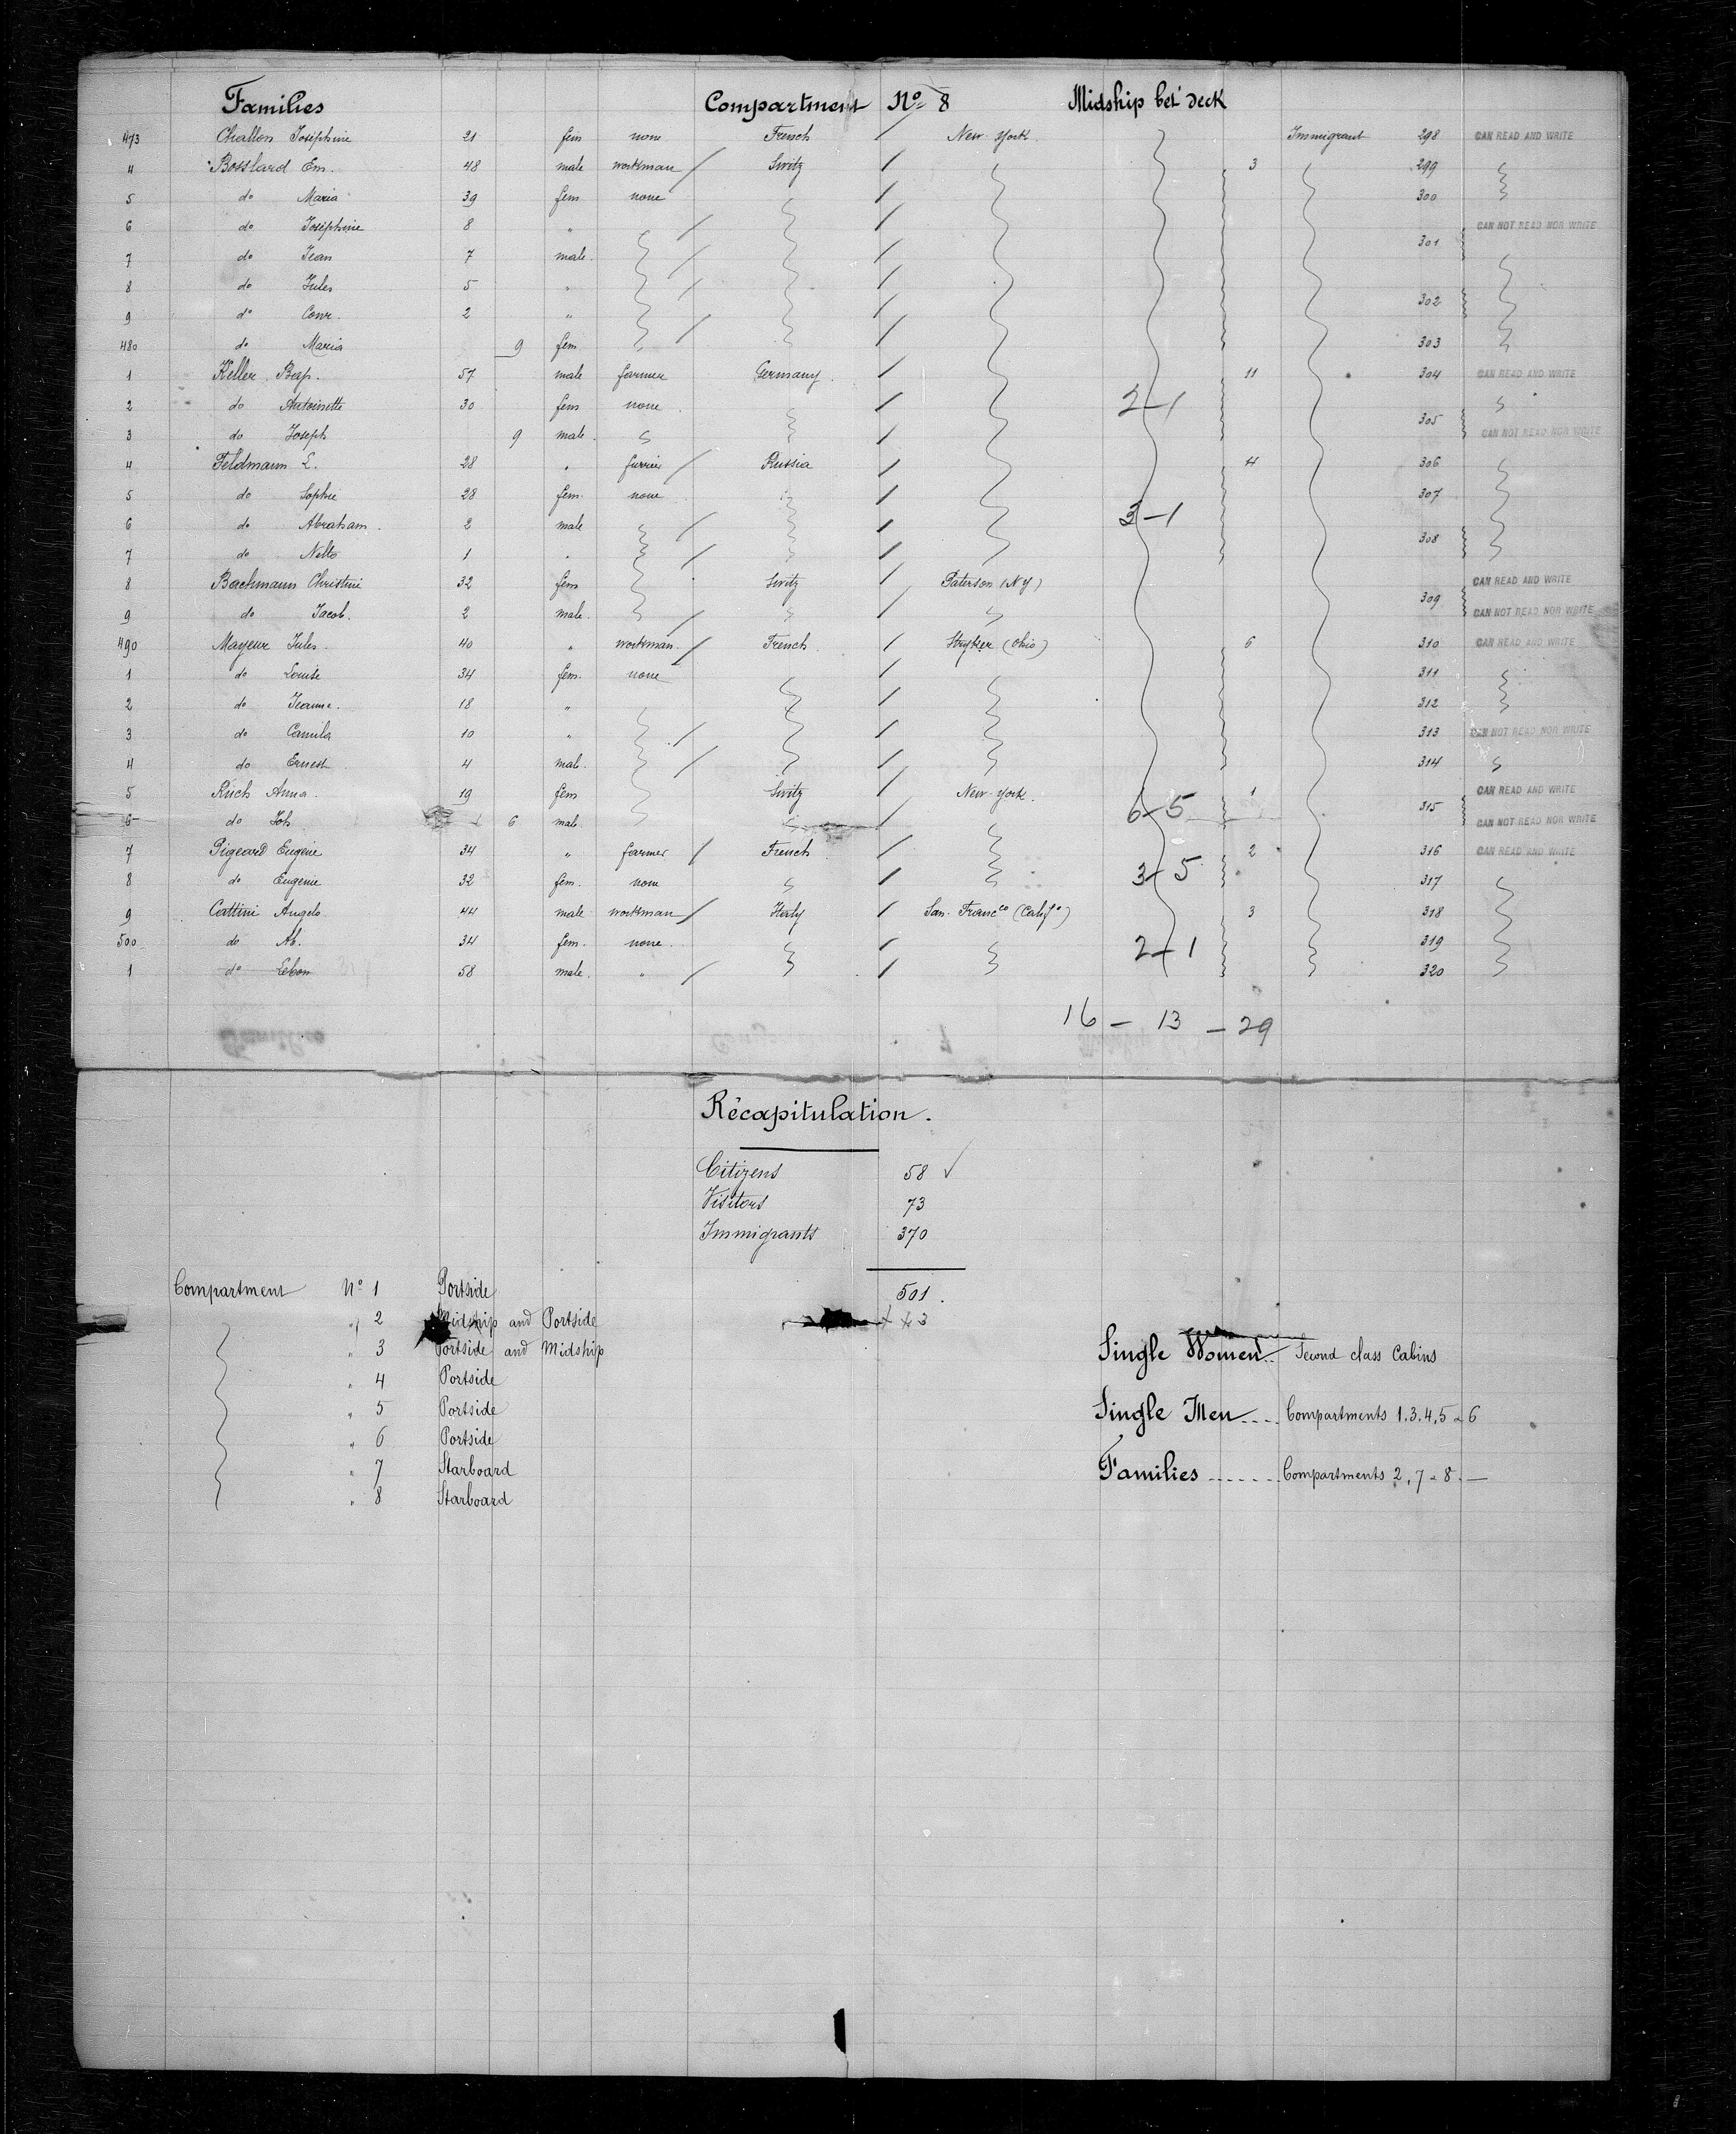 Families Compartment Nº 8 Midship bet' deck
473 Challon Joséphine 21 fem none French / New-York. Immigrant 298 CAN READ AND WRITE
4 Bosshard Em. 48 male workman / Switz / 3 299
5 do Maria 39 fem none / 300
6 do Joséphine 8 " / / CAN NOT READ NOR WRITE
7 do Jean 7 male. / / 301
8 do Jules 5 " / /
9 do Conr. 2 " / 302
480 do Maria 9 fem / / 303
1 Keller Bap. 57 male farmer Germany. / 11 304 CAN READ AND WRITE
2 do Antoinette 30 fem none / 2-1 305
3 do Joseph 9 male. / CAN NOT READ NOR WRITE
4 Feldmann L. 28 " furrier / Russia / 4 306
5 do Sophie 28 fem. none / 307
6 do Abraham. 2 male / / 3-1
7 do 1 " / / 308
8 Bachmann Christine 32 fem Switz / Paterson (NY) CAN READ AND WRITE
9 do Jacob. 2 male. / / 309 CAN NOT READ NOR WRITE
490 Mayeur Jules. 40 " workman / French / Stryker (Ohio) 6 310 CAN READ AND WRITE
1 do Louise 34 fem. none / 311
2 do Jeanne. 18 " / 312
3 do Camila 10 " / / 313 CAN NOT READ NOR WRITE
4 do Ernest 4 mal. / / 314
5 Ruch Anna. 19 fem Switz / New-York. 6-5 1 CAN READ AND WRITE
6 do Joh 6 mal. / 315 CAN NOT READ NOR WRITE
7 Pigeard Eugene 34 " farmer / French / 2 316 CAN READ AND WRITE
8 do Eugenie 32 fem. none / 3-5 317
9 Cattini Angelo 44 male workman / Italy / San-Francco (Califa) 3 318
500 do Ab. 34 fem. none. / 2-1 319
1 do Lebon 58 male. " / / 320
16 - 13 - 29
Récapitulation.
Citizens 58 ✓
Visitors 73
Immigrants 370
501.
Compartment Nº 1 Portside
" 2 Midship and Portside
" 3 Portside and Midship
" 4 Portside
" 5 Portside
" 6 Portside
" 7 Starboard
" 8 Starboard
Single Women.. Second class Cabins
Single Men.... Compartments 1.3.4.5 - 6
Families ....... Compartments 2, 7 - 8. —